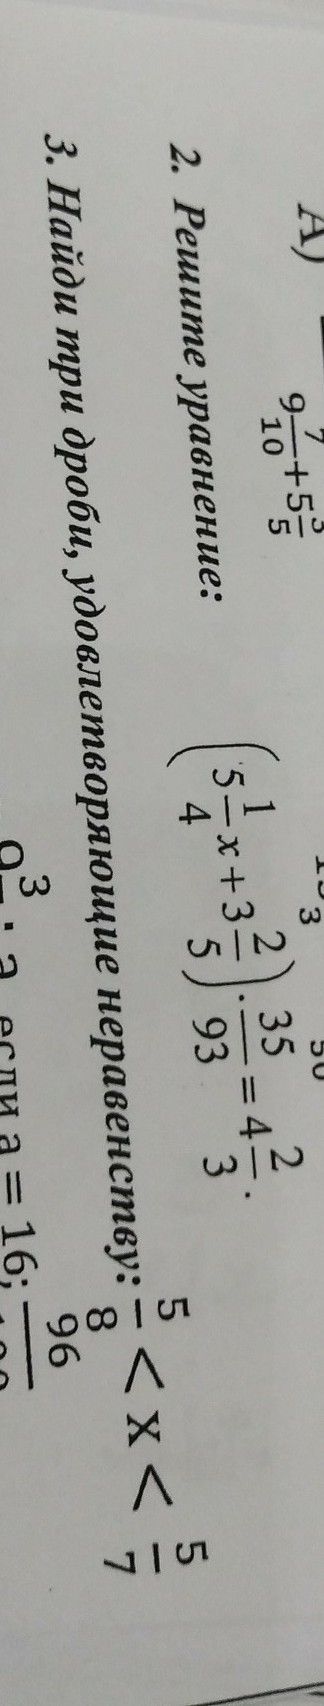 А) 9 7/10 + 5 3/5
2. Решите уравнение: (5 1/4 x + 3 2/5) · 35/93 = 4 2/3.
3. Найди три дроби, удовлетворяющие неравенству: 5/8 < x < 5/7
если a = 16; 96